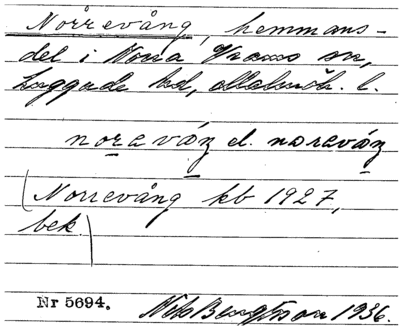 Nörrevång, hemmans-
del i Norra Vrams sn,
Luggude hd, Malmöh. l.
noravåŋ el. noravåŋ
(Norrevång kb 1927,
bek.)
Nr 5694. Nils Bengtsson 1936.